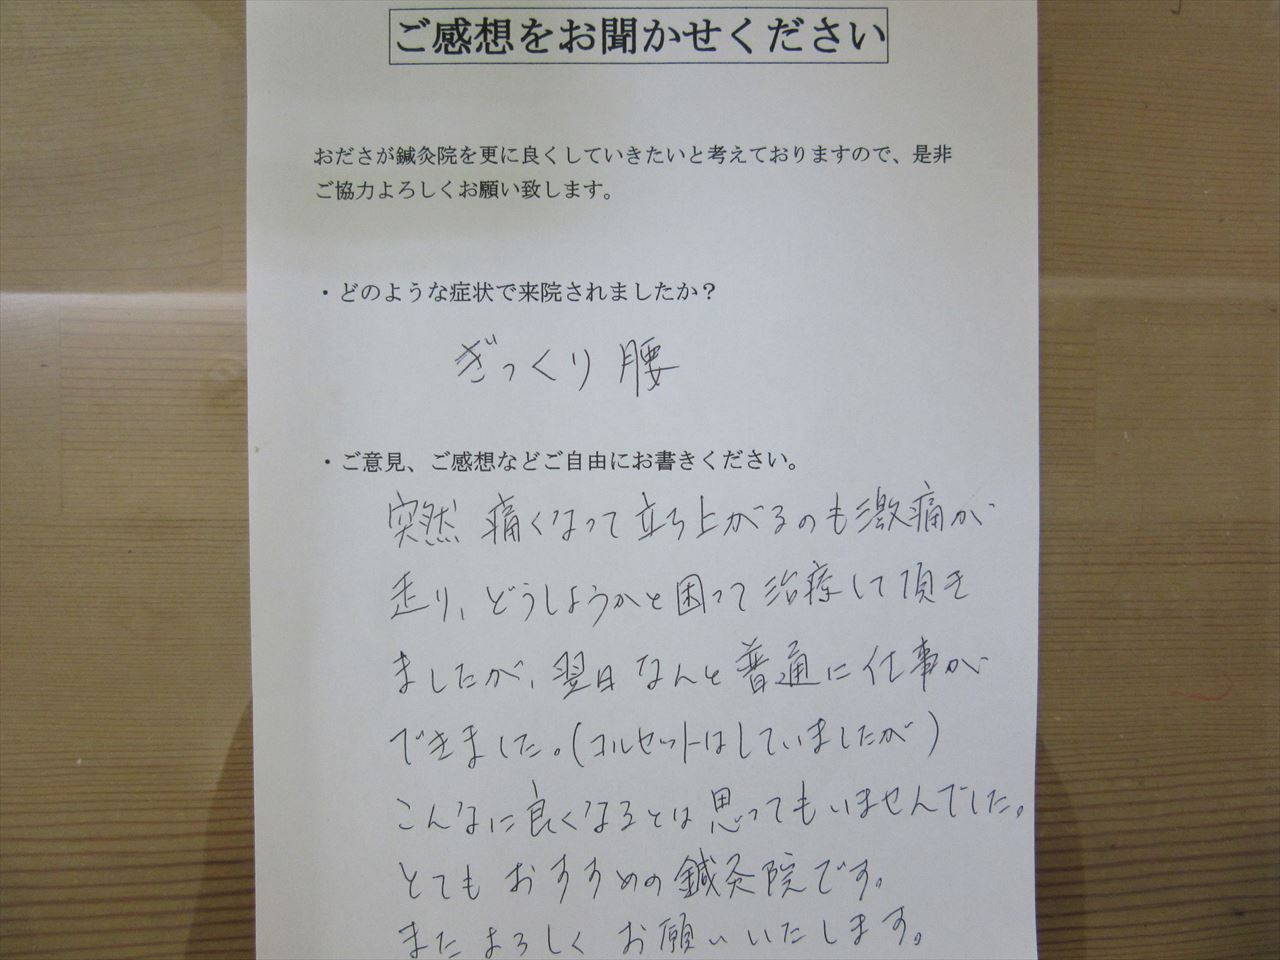 ご感想をお聞かせください
おださが鍼灸院を更に良くしていきたいと考えておりますので、是非
ご協力よろしくお願い致します。
・どのような症状で来院されましたか？
ぎっくり腰
・ご意見、ご感想などご自由にお書きください。
突然 痛くなって立ち上がるのも激痛が
走り、どうしようかと困って治療して頂き
ましたが、翌日なんと普通に仕事が
できました。(コルセットはしていましたが)
こんなに良くなるとは思ってもいませんでした。
とてもおすすめの鍼灸院です。
またよろしくお願いいたします。